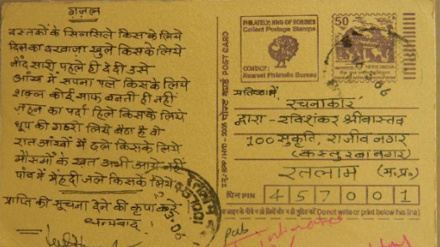 ग़ज़ल
दस्तकों के सिलसिले किसके लिये
दिल का दरवाज़ा खुले किसके लिये
नींद सारी पहले ही दे दी उसे
आँख में सपना पले किसके लिये
शक्ल कोई साफ़ बनती ही नहीं
ज़हन का पर्दा हिले किसके लिये
धूप की गठरी लिये बैठा है वो
रात आँखों में ढले किसके लिये
मौसमों के ख़त अभी आये नहीं
पाँव में मेंहदी जले किसके लिये
प्राप्ति की सूचना देने की कृपा करें
धन्यवाद
PHILATELY, KING OF HOBBIES
Collect Postage Stamps
CONTACT:
Nearest Philatelic Bureau
50
पोस्ट कार्ड POST CARD
प्रतिष्ठा में,
रचनाकार
द्वारा - रविशंकर श्रीवास्तव
100 सुकृति, राजीव नगर
(कस्तूरबा नगर)
रतलाम (म.प्र.)
पिन PIN 457001
Do not write or print below this line